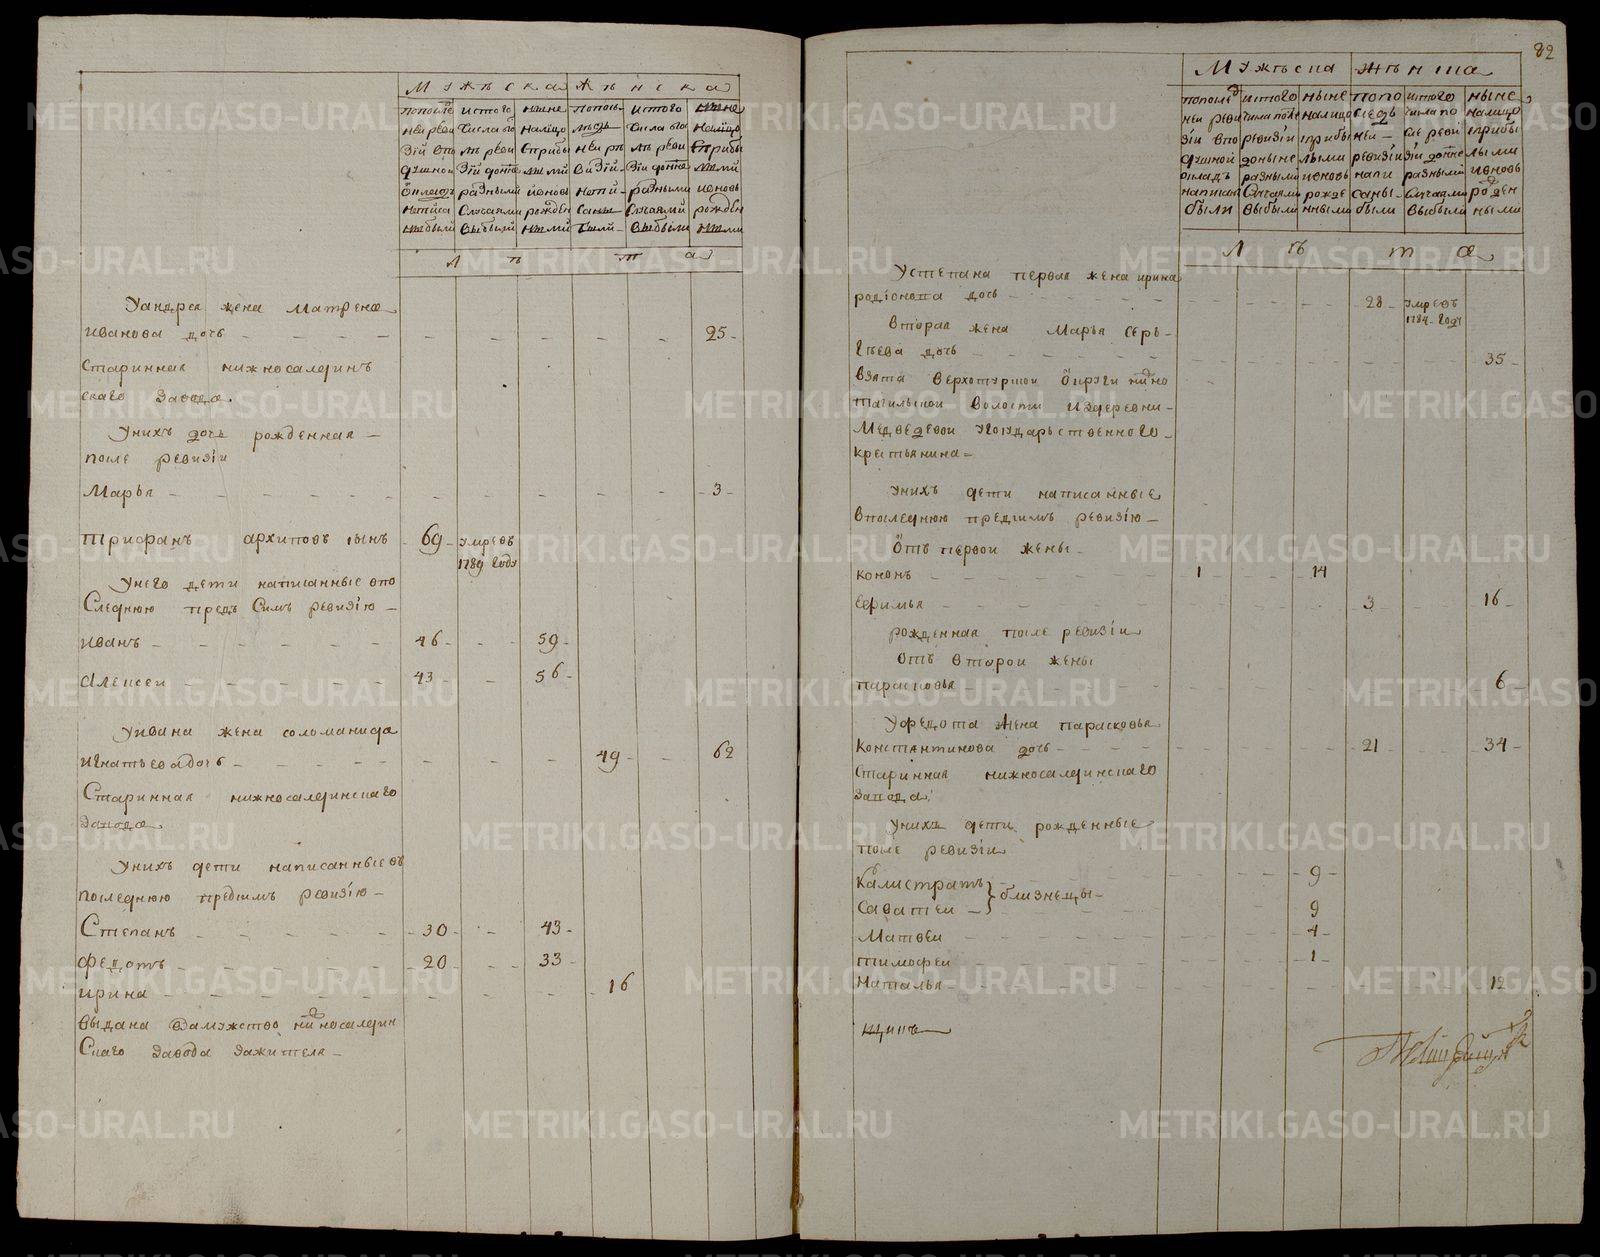 Мужѣска Женска
попослѣ
ней реви
зiи впо
душной
окладъ
написа
ны были
истого
числа по
слѣ реви
зiи доны
разными
случаями
выбыли
ныне
налицо
сприбы
лыми
ивновь
рожден
ными
попосл
ѣдъ
ней ре
визiи
напи
саны
были
истого
числа по
слѣ реви
зiи доны
разными
случаями
выбыли
ныне
налицо
сприбы
лыми
ивновь
рожден
ными
лѣта
Уандрея жена Матрена
Иванова дочь 25
Старинная нижносалдинъ
скаго завода.
Унихъ дочь рожденная
после ревизiи
Марья 3
Трифанъ архиповъ сынъ 69 умревъ
1789 году
Унего дети написанные впо
Следнюю предъ Симъ ревизiю
Иванъ 46 59
Алексеи 43 56
Уивана жена соломанида
игнатьева дочь 49 62
Старинная нижносалдинскаго
завода
Унихъ дети написанные въ
последнюю предсимъ ревизiю
Степанъ 30 43
Федотъ 20 33
ирина 16
выдана взамужство нижносалдин
Скаго завода зажителя
82
Мужѣска Женска
попослед
ней реви
зiи впо
душной
окладъ
написан
были
истого
числа после
ревизiи
доныне
разными
Случаями
выбыли
ныне
налицо
сприбы
лыми
ивновь
рожде
нными
попо
следъ
ней
ревизiи
напи
саны
были
истого
числа по
сле реви
зiи доныне
разными
Случаями
выбыли
ныне
налицо
сприбы
лыми
ивновь
рожден
ными
Лѣта
Устепана первая жена ирина
родiонова дочь 28 умревъ
1784 году
вторая жена Марья серь
гѣева дочь 35
взята верхотурской округи нижно
тагильской волости издеревни
Медведевой угосударьственного
крестьянина
Унихъ дети написанные
впоследнюю предсимъ ревизiю
отъ первой жены
кононъ 1 14
Ефимья 3 16
рожденная после ревизiи
отъ второй жены
парасковья 6
Уфедота жена парасковья
Константинова дочь 21 34
Старинная нижносалдинскаго
завода
Унихъ дети рожденные
после ревизiи
Калистратъ 9
} близнецы
Саватеи 9
Матвеи 4
тимофеи 1
Наталья 12
METRIKI.GASO-URAL.RU